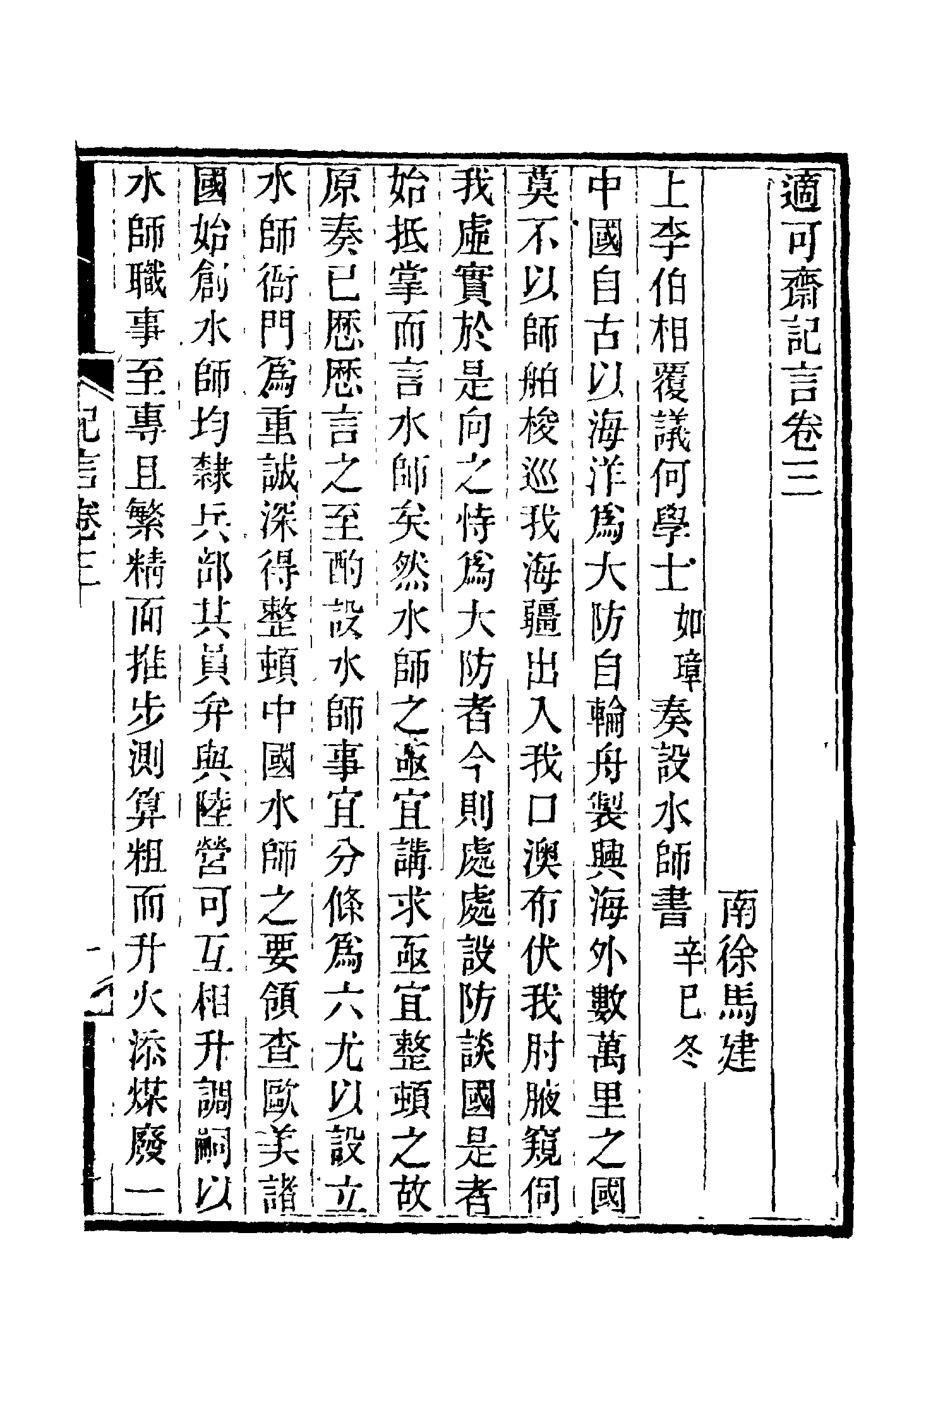 適可齋記言卷三
南徐馬建
上李伯相覆議何學士如璋奏設水師書辛巳冬
中國自古以海洋爲大防自輪舟製興海外數萬里之國
莫不以師船梭巡我海疆出入我口澳布伏我肘腋窺伺
我虛實於是向之恃爲大防者今則處處設防談國是者
始抵掌而言水師矣然水師之亟宜講求亟宜整頓之故
原奏已歷歷言之至酌設水師事宜分條爲六尤以設立
水師衙門爲重誠深得整頓中國水師之要領查歐美諸
國始創水師均隸兵部其員弁與陸營可互相升調嗣以
水師職事至專且繁精而推步測算粗而升火添煤廢一
記言卷三
一